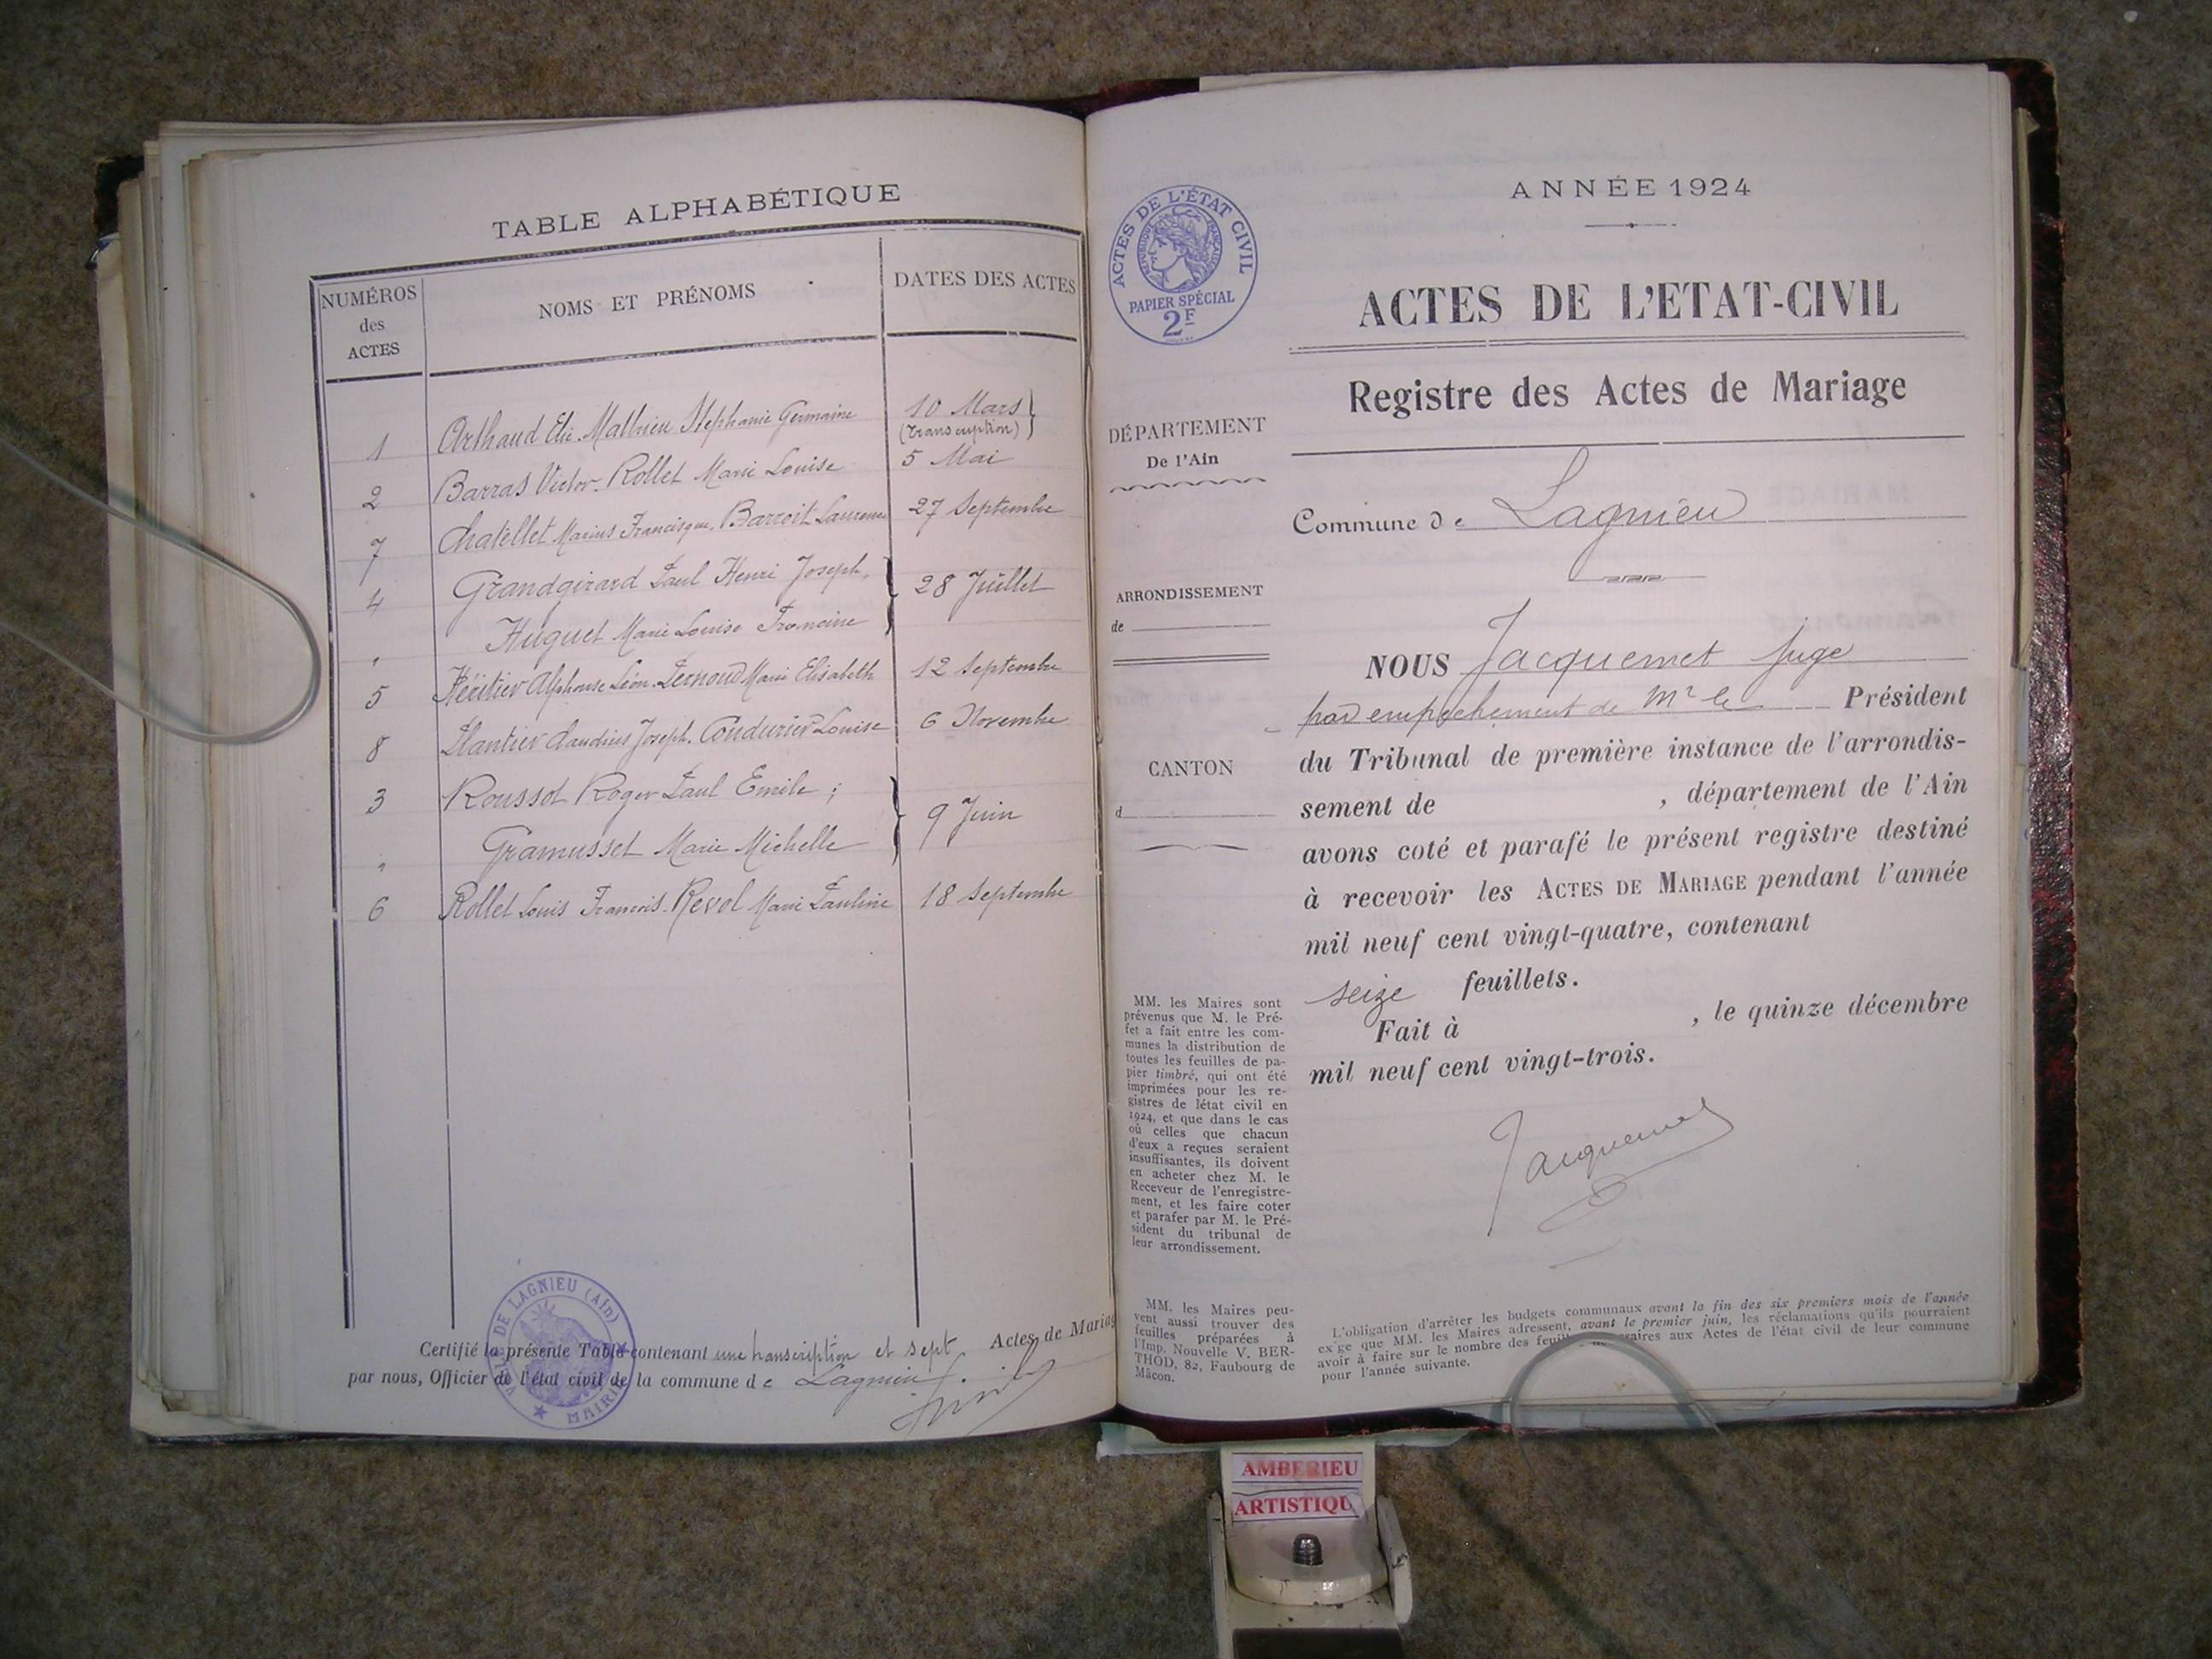 TABLE ALPHABÉTIQUE
NUMÉROS des ACTES
NOMS ET PRÉNOMS
DATES DES ACTES
1 Arthaud Elie. Mathieu Stephanie Germaine 10 Mars (transcription)
2 Barras Victor. Rollet Marie Louise 5 Mai
7 Chatellet Marius Francisque. Barroit Laurence 27 Septembre
4 Grandgirard Paul Henri Joseph, 28 Juillet
" Huguet Marie Louise Francine
5 Héritier Alphonse Léon. Pernoud Marie Elisabeth 12 Septembre
8 Plantier Claudius Joseph. Condurier Louise 6 Novembre
3 Roussot Roger Paul Emile ; 9 Juin
" Gramusset Marie Michelle
6 Rollet Louis François. Revol Marie Pauline 18 Septembre
Certifié la présente Table contenant une transcription et sept Actes de Mariag
par nous, Officier de l'état civil de la commune de Lagnieu.
VILLE DE LAGNIEU (AIN)
MAIRIE
ACTES DE L'ÉTAT CIVIL
RÉPUBLIQUE FRANÇAISE
PAPIER SPÉCIAL
2F
DÉPARTEMENT
De l'Ain
ARRONDISSEMENT
de
CANTON
d
MM. les Maires sont
prévenus que M. le Pré-
fet a fait entre les com-
munes la distribution de
toutes les feuilles de pa-
pier timbré, qui ont été
imprimées pour les re-
gistres de létat civil en
1924, et que dans le cas
où celles que chacun
d'eux a reçues seraient
insuffisantes, ils doivent
en acheter chez M. le
Receveur de l'enregistre-
ment, et les faire coter
et parafer par M. le Pré-
sident du tribunal de
leur arrondissement.
MM. les Maires peu-
vent aussi trouver des
feuilles préparées à
l'Imp. Nouvelle V. BER-
THOD, 82, Faubourg de
Mâcon.
ANNÉE 1924
ACTES DE L'ETAT-CIVIL
Registre des Actes de Mariage
Commune de Lagnieu
NOUS Jacquemet Juge
par empêchement de Mr le Président
du Tribunal de première instance de l'arrondis-
sement de , département de l'Ain
avons coté et parafé le présent registre destiné
à recevoir les ACTES DE MARIAGE pendant l'année
mil neuf cent vingt-quatre, contenant
seize feuillets.
Fait à , le quinze décembre
mil neuf cent vingt-trois.
Jacquemet
L'obligation d'arrêter les budgets communaux avant la fin des six premiers mois de l'année
exige que MM. les Maires adressent, avant le premier juin, les réclamations qu'ils pourraient
avoir à faire sur le nombre des feuill aires aux Actes de l'état civil de leur commune
pour l'année suivante.
AMBERIEU
ARTISTIQU